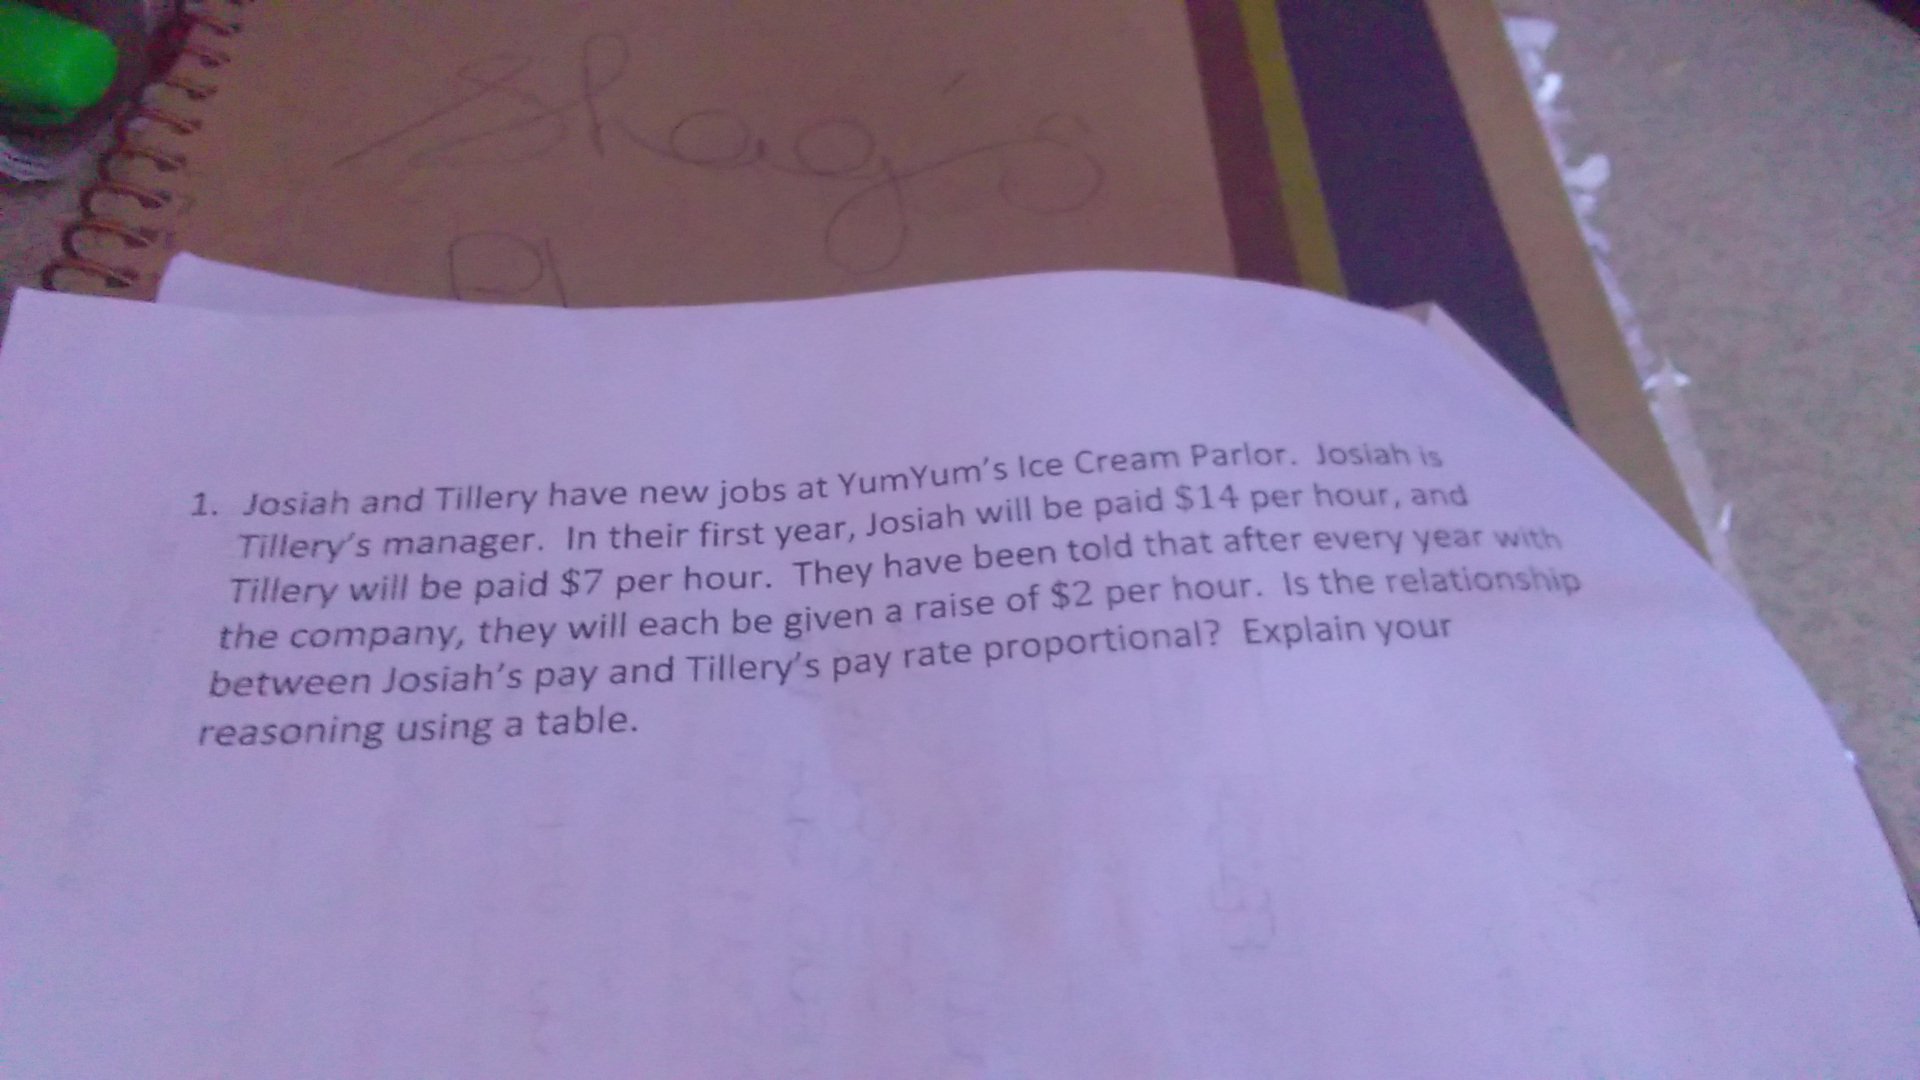 Shag's
1. Josiah and Tillery have new jobs at YumYum's Ice Cream Parlor. Josiah is
Tillery's manager. In their first year, Josiah will be paid $14 per hour, and
Tillery will be paid $7 per hour. They have been told that after every year with
the company, they will each be given a raise of $2 per hour. Is the relationship
between Josiah's pay and Tillery's pay rate proportional? Explain your
reasoning using a table.